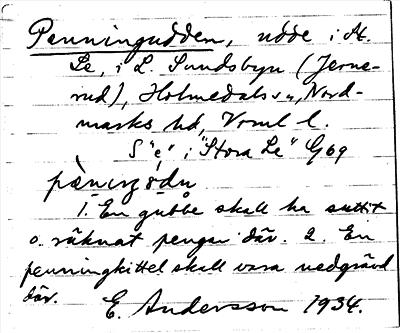 Penningudden, udde i St.
Le, i L. Sundsbyn (Jerne-
rud), Holmedals sn, Nord-
marks hd, Vrml l.
S "e" i "Stora Le" G69
1. En gubbe skall ha suttit
o. räknat pengar där. 2. En
penningkittel skall vara nedgrävd
där.
E. Andersson 1934.